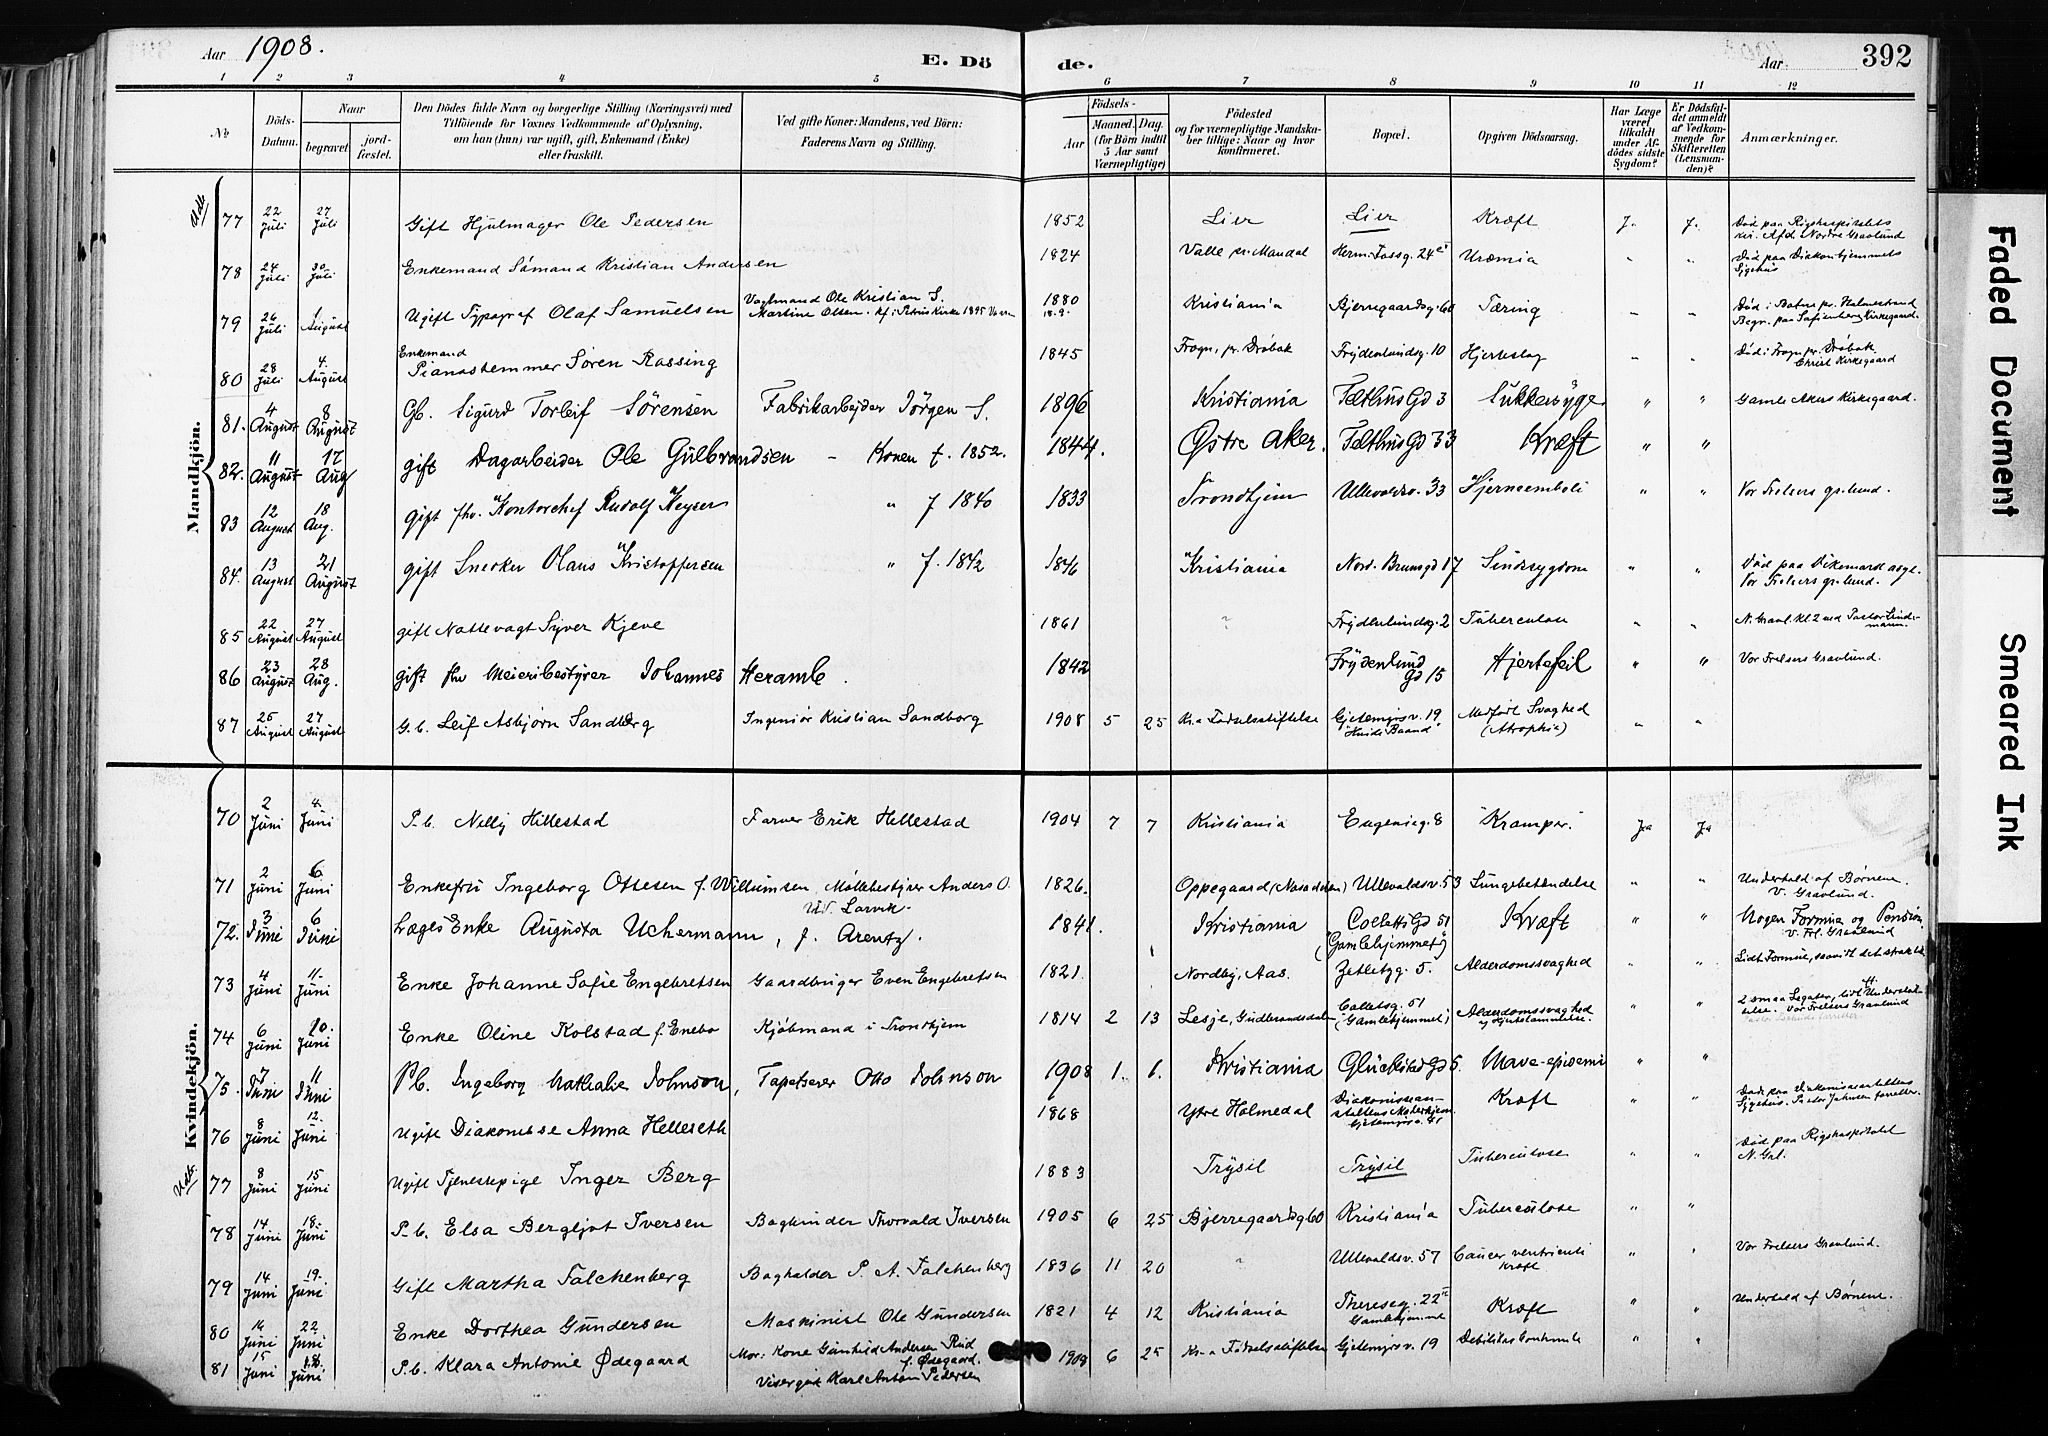 Aar 1908.
E. Dö
de.
Aar
392
1 2 3 4 5 6 7 8 9 10 11 12
№
Döds-Datum.
Naar
begravet
jord-fæstet.
Den Dödes fulde Navn og borgerlige Stilling (Næringsvei) med
Tilföiende for Voxnes Vedkommende af Oplysning,
om han (hun) var ugift, gift, Enkemand (Enke)
eller fraskilt.
Ved gifte Koner: Mandens, ved Börn:
Faderens Navn og Stilling.
Födsels-
Aar
Maaned. Dag.
(for Börn indtil
5 Aar samt
Værnepligtige)
Födested
og for værnepligtige Mandska-
ber tillige: Naar og hvor
konfirmeret.
Bopæl.
Opgiven Dödsaarsag.
Har Læge
været
tilkaldt
under Af-
dödes sidste
Sygdom?
Er Dödsfal-
det anmeldt
af Vedkom-
mende for
Skifteretten
(Lensman-
den)?
Anmærkninger.
Mandkjön.
77 22 Juli 27 Juli Gift Hjulmager Ole Pedersen 1852 Lier Lier Kræft J. J. Död paa Rigshospitalets kir. Afd. Nordre Gravlund
78 24 Juli 30 Juli Enkemand Sömand Kristian Andersen 1824 Valle pr. Mandal Herm. Fossg. 24 Uræmia " " Död paa Diakonhjemmets Sygehus
79 26 Juli 1 August Ugift Typograf Olaf Samuelsen Vagtmand Ole Kristian S. Martine Olsen. Kf. i Petrus Kirke 1895 1880 18.9. Kristiania Bjerregaardsg. 60 Tæring " " Död i Botne pr. Holmestrand Begr. paa Sofienberg Kirkegaard.
80 28 Juli 4. August Enkemand Pianostemmer Sören Rassing 1845 Frogn, pr. Dröbak Frydenlundsg. 10 Hjerteslag " " Död i Frogn pr. Dröbak Christ Kirkegaard
81. 4 August 8 August Gb. Sigurd Torleif Sörensen Fabrikarbejder Jörgen S. 1896 Kristiania Telthus Gd 3 Sukkersyge " " Gamle Akers Kirkegaard.
82. 11 August 17 Aug gift Dagarbeider Ole Gulbrandsen - Konen f. 1852. 1844. Östre Aker. Telthus Gd 33 Kræft " "
83 12 August 18 Aug. gift fhv. Kontorchef Rudolf Keyser " f 1840 1833 Trondhjem Ullevaldsv. 33 Hjerneemboli " " Vor Frelsers gr.lund.
84. 13 August 21 August gift Snekker Olaus Kristoffersen " f. 1842 1846 Kristiania Nord. Brunsgd 17 Sindssygdom " " Död paa Dikemark asyl. Vor Frelsers gr.lund.
85 22 August 27 August gift Nattevagt Syver Kjeve 1861 " Frydenlundsg. 2 Tuberculose " " N. Gravl. Kl. 2 ved Pastor Lindemann.
86 23 August 28 Aug. gift fhv Meieribestyrer Johannes Heramb. 1842 Frydenlund Gd 15 Hjertefeil " " Vor Frelsers Gravlund.
87 25 August 27 August G.b. Leif Asbjørn Sandborg Ingeniör Kristian Sandborg 1908 5 25 Kr.a Födselsstiftelse Gjetemyrsv. 19 Medfödt Svaghed (Atrophia) " "
Kvindekjön.
70 2 Juni 4. Juni P.b. Nelly Hillestad Farver Erik Hillestad 1904 7 7 Kristiania Eugenieg. 8 Kramper. Ja Ja
71 2 Juni 6 Juni Enkefru Ingeborg Ottesen f. Willumsen, Möllebestyrer Anders O. v. Larvik 1826. Oppegaard (Nesodden) Ullevaldsv. 53 Lungebetændelse " " Underhold af Børnene. V. Gravlund.
72. 3 Juni 6 Juni Læges Enke Augusta Uchermann, f. Arentz. 1841. Kristiania Colletts Gd 51 (Gamlehjemmet) Kræft " " Nogen Formue og Pension v. Frl. Gravlund
73 4 Juni 11 Juni Enke Johanne Sofie Engebretsen Gaardbruger Even Engebretsen 1821. Nordby, Aas. Zetlitzg. 5. Alderdomssvaghed " " Lidt Formue, saavidt det strak til.
74 6 Juni 10. Juni Enke Oline Kolstad f. Enebo Kjöbmand i Trondhjem 1814 2 13 Lesje, Gudbrandsdalen Colletsg. 51 (Gamlehjemmet) Alderdomssvaghed Hjertelammelse. " " 2 smaa Legater, lidt Understøttelse. Vor Frelsers Gravlund
75. 7 Juni 11 Juni P.b. Ingeborg Mathalie Johnson, Tapetserer Otto Johnson 1908 1. 1. Kristiania Glückstad Gd 5. Mave-epidemi " "
76 8 Juni 12. Juni Ugift Diakonisse Anna Hellereth 1868 Ytre Holmedal Diakonisseanstaltens Moderhjem. Gjetemyrsv. Kræft " " Död paa Diakonisseanstaltens Sygehus. Pastor Johnsen forretter.
77 8 Juni 15 Juni Ugift Tjenestepige Inger Berg 1883 Trysil Trysil Tuberculose " " Död paa Rigshospitalet N. Grl.
78 14 Juni 18. Juni P.b. Elsa Bergljot Iversen Bogbinder Thorvald Iversen 1905 6 25 Bjerregaardsg 60 Kristiania Tuberculose " "
79 14 Juni 19. Juni Gift Martha Falchenberg Bogholder P. A. Falchenberg 1836 11 20 " Ullevaldsv. 57 Cancer ventriculi Kræft " " Vor Frelsers Gravlund.
80 14 Juni 22 Juni Enke Dorthea Gundersen Maskinist Ole Gundersen 1821 4 12 Kristiania Theresesg. 22 Gamlehjemmet Kræft " " Underhold af Børnene.
81 15 Juni 18. Juni P.b. Klara Antonie Ødegaard Mor: Kone Gunhild Andersen Rud f. Ødegaard. Visergut Karl Anton Pedersen 1908 6 25 Kr.a Födselsstiftelse Gjetemyrsv. 19 Debilitas " "
Faded Document
Smeared Ink